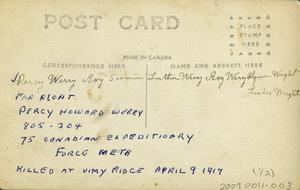 POST CARD
PLACE
STAMP
HERE
MADE IN CANADA
CORRESPONDENCE HERE
NAME AND ADDRESS HERE
Percy Werry Roy Luther Werry Roy Werry Wright
Wright
FAR RIGHT
PERCY HOWARD WERRY
805-204
75 CANADIAN EXPEDITIONARY
FORCE
KILLED AT VIMY RIDGE APRIL 9 1917
(1/2)
2009.0011-003